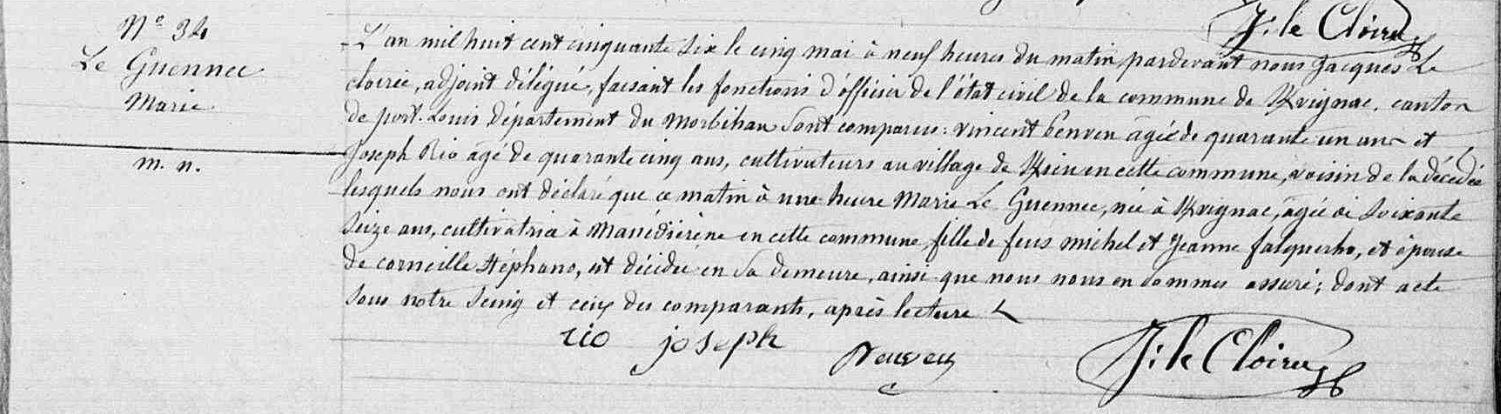 J: le Cloirec
N° 34
Le Guennec
Marie
m. n.
L'an mil huit cent cinquante six le cinq mai à neuf heures du matin pardevant nous Jacques Le
cloirec, adjoint délégué, faisant les fonctions d'officier de l'état civil de la commune de Kvignac, canton
de port-Louis département du Morbihan sont comparus: vincent benven âgé de quarante un ans et
Joseph Rio âgé de quarante cinq ans, cultivateurs au village de en cette commune, voisin de la décédée
lesquels nous ont déclaré que ce matin à une heure Marie Le Guennec, née à Kvignac, âgée de soixante
seize ans, cultivatrice à Manédiérène en cette commune, fille de feus michel et Jeanne falquerho, et épouse
de corneille Stéphano, est décédée en sa demeure, ainsi que nous nous en sommes assuré; dont acte
sous notre seing et ceux des comparants, après lecture
rio joseph
J: le Cloirec